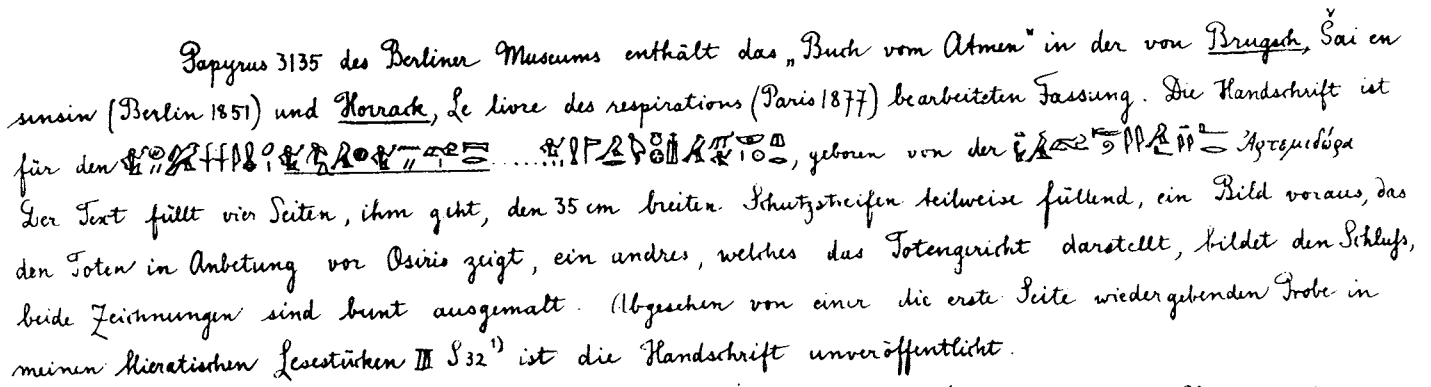 Papyrus 3135 des Berliner Museums enthält das „Buch vom Atmen" in der von Brugsch, Šai en
sinsin (Berlin 1851) und Horrack, Le livre des respirations (Paris 1877) bearbeiteten Fassung. Die Handschrift ist
für den ......, geboren von der Ἀρτεμιδώρα
Der Text füllt vier Seiten, ihm geht, den 35 cm breiten Schutzstreifen teilweise füllend, ein Bild voraus, das
den Toten in Anbetung vor Osiris zeigt, ein andres, welches das Totengericht darstellt, bildet den Schluß,
beide Zeichnungen sind bunt ausgemalt. Abgesehen von einer die erste Seite wiedergebenden Probe in
meinen Hieratischen Lesestücken III S 32 ¹) ist die Handschrift unveröffentlicht.